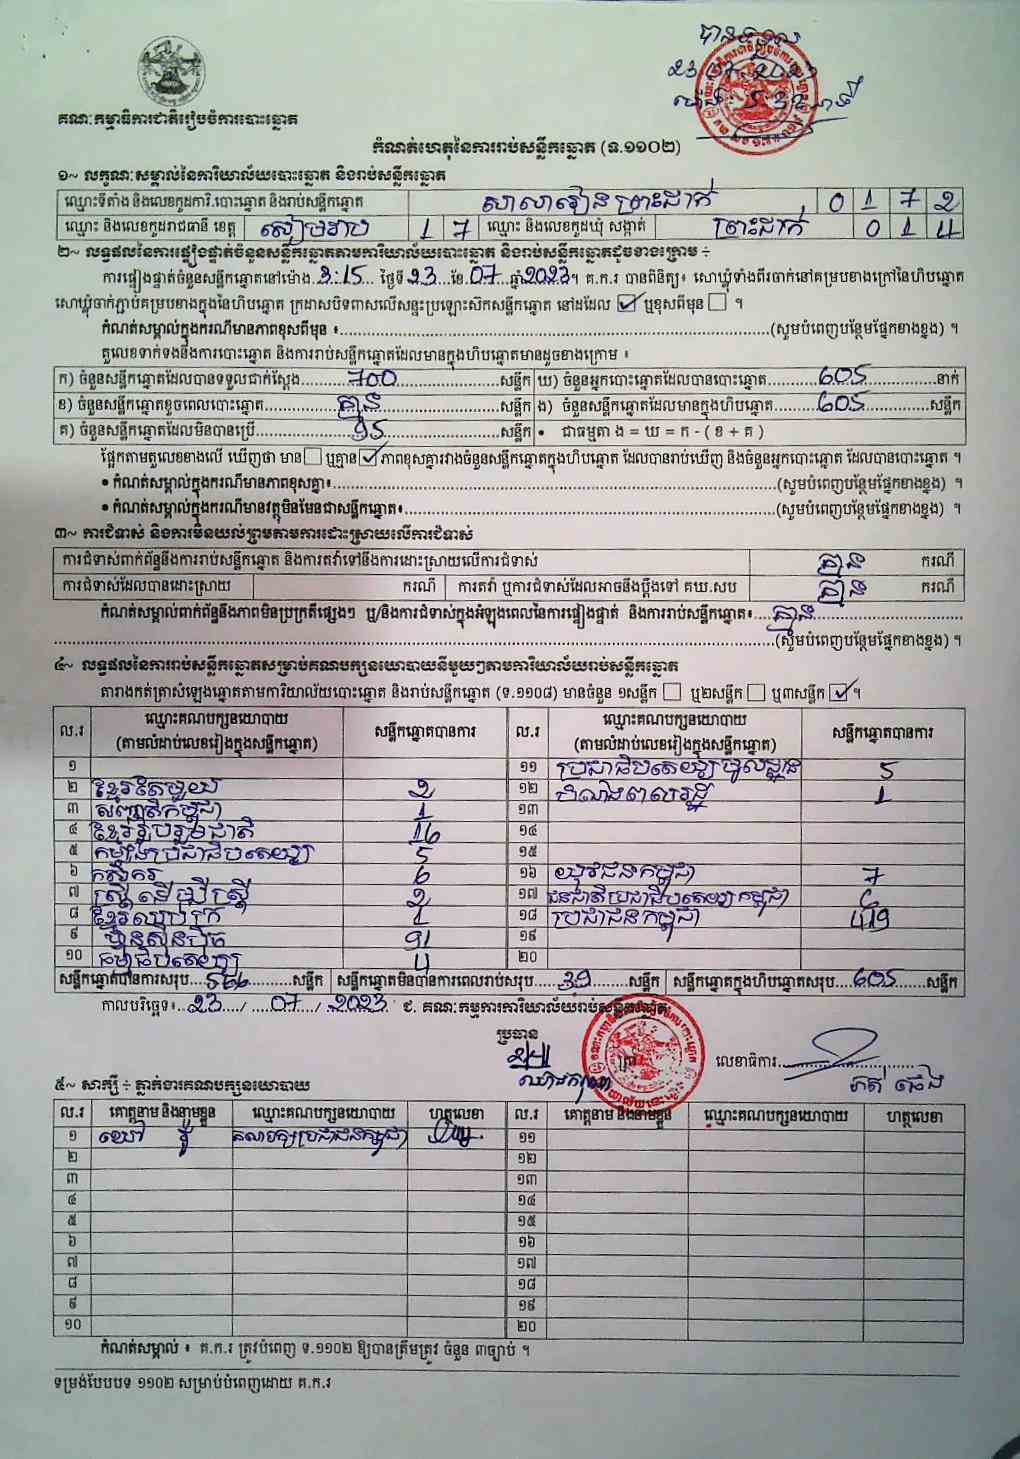 បានទទួល
គណៈកម្មាធិការជាតិរៀបចំការបោះឆ្នោត
កំណត់ហេតុនៃការរាប់សន្លឹកឆ្នោត (ទ.១១០២)
១~ លក្ខណៈសម្គាល់នៃការិយាល័យបោះឆ្នោត និងរាប់សន្លឹកឆ្នោត
ឈ្មោះទីតាំង និងលេខកូដការិ.បោះឆ្នោត និងរាប់សន្លឹកឆ្នោត សាលារៀន ព្រះដាក់ 0 1 7 2
ឈ្មោះ និងលេខកូដរាជធានី ខេត្ត សៀមរាប 1 7 ឈ្មោះ និងលេខកូដឃុំ សង្កាត់ ព្រះដាក់ 0 1 4
២~ លទ្ធផលនៃការផ្ទៀងផ្ទាត់ចំនួនសន្លឹកឆ្នោតតាមការិយាល័យបោះឆ្នោត និងរាប់សន្លឹកឆ្នោតដូចខាងក្រោម ÷
ការផ្ទៀងផ្ទាត់ចំនួនសន្លឹកឆ្នោតនៅម៉ោង 3:15 ថ្ងៃទី 23 ខែ 07 ឆ្នាំ 2023។ គ.ក.រ បានពិនិត្យ៖ សោឃ្លុំទាំងពីរចាក់នៅគម្របខាងក្រៅនៃហិបឆ្នោត
សោឃ្លុំចាក់ភ្ជាប់គម្របខាងក្នុងនៃហិបឆ្នោត ក្រដាសបិទពាសលើសន្ទះប្រឡោះសិកសន្លឹកឆ្នោត នៅដដែល ☑ ឬខុសពីមុន ☐ ។
កំណត់សម្គាល់ក្នុងករណីមានភាពខុសពីមុន ៖ (សូមបំពេញបន្ថែមផ្នែកខាងខ្នង) ។
តួលេខទាក់ទងនឹងការបោះឆ្នោត និងការរាប់សន្លឹកឆ្នោតដែលមានក្នុងហិបឆ្នោតមានដូចខាងក្រោម ៖
ក) ចំនួនសន្លឹកឆ្នោតដែលបានទទួលជាក់ស្តែង 700 សន្លឹក ឃ) ចំនួនអ្នកបោះឆ្នោតដែលបានបោះឆ្នោត 605 នាក់
ខ) ចំនួនសន្លឹកឆ្នោតខូចពេលបោះឆ្នោត គ្មាន សន្លឹក ង) ចំនួនសន្លឹកឆ្នោតដែលមានក្នុងហិបឆ្នោត 605 សន្លឹក
គ) ចំនួនសន្លឹកឆ្នោតដែលមិនបានប្រើ 95 សន្លឹក • ជាធម្មតា ង = ឃ = ក - ( ខ + គ )
ផ្អែកតាមតួលេខខាងលើ ឃើញថា មាន ☐ ឬគ្មាន ☑ ភាពខុសគ្នារវាងចំនួនសន្លឹកឆ្នោតក្នុងហិបឆ្នោត ដែលបានរាប់ឃើញ និងចំនួនអ្នកបោះឆ្នោត ដែលបានបោះឆ្នោត ។
• កំណត់សម្គាល់ក្នុងករណីមានភាពខុសគ្នា៖ (សូមបំពេញបន្ថែមផ្នែកខាងខ្នង) ។
• កំណត់សម្គាល់ក្នុងករណីមានវត្ថុមិនមែនជាសន្លឹកឆ្នោត៖ (សូមបំពេញបន្ថែមផ្នែកខាងខ្នង) ។
៣~ ការជំទាស់ និងការមិនយល់ព្រមតាមការដោះស្រាយលើការជំទាស់
ការជំទាស់ពាក់ព័ន្ធនឹងការរាប់សន្លឹកឆ្នោត និងការតវ៉ាទៅនឹងការដោះស្រាយលើការជំទាស់ គ្មាន ករណី
ការជំទាស់ដែលបានដោះស្រាយ ករណី ការតវ៉ា ឬការជំទាស់ដែលអាចនឹងប្តឹងទៅ គឃ.សប គ្មាន ករណី
កំណត់សម្គាល់ពាក់ព័ន្ធនឹងភាពមិនប្រក្រតីផ្សេងៗ ឬ/និងការជំទាស់ក្នុងអំឡុងពេលនៃការផ្ទៀងផ្ទាត់ និងការរាប់សន្លឹកឆ្នោត៖ គ្មាន
(សូមបំពេញបន្ថែមផ្នែកខាងខ្នង) ។
៤~ លទ្ធផលនៃការរាប់សន្លឹកឆ្នោតសម្រាប់គណបក្សនយោបាយនីមួយៗតាមការិយាល័យរាប់សន្លឹកឆ្នោត
តារាងកត់ត្រាសំឡេងឆ្នោតតាមការិយាល័យបោះឆ្នោត និងរាប់សន្លឹកឆ្នោត (ទ.១១០៨) មានចំនួន ១សន្លឹក ☐ ឬ២សន្លឹក ☐ ឬ៣សន្លឹក ☑ ។
ល.រ ឈ្មោះគណបក្សនយោបាយ (តាមលំដាប់លេខរៀងក្នុងសន្លឹកឆ្នោត) សន្លឹកឆ្នោតបានការ ល.រ ឈ្មោះគណបក្សនយោបាយ (តាមលំដាប់លេខរៀងក្នុងសន្លឹកឆ្នោត) សន្លឹកឆ្នោតបានការ
១ ១១ ប្រជាធិបតេយ្យមូលដ្ឋាន 5
២ ខ្មែរតែមួយ 2 ១២ បំណងពលរដ្ឋ 1
៣ សញ្ជាតិកម្ពុជា 1 ១៣
៤ ខ្មែររួបរួមជាតិ 16 ១៤
៥ កម្លាំងប្រជាធិបតេយ្យ 5 ១៥
៦ កសិករ 6 ១៦ យុវជនកម្ពុជា 7
៧ ស្ត្រីដើម្បីស្ត្រី 2 ១៧ ជនជាតិប្រជាធិបតេយ្យកម្ពុជា
៨ ខ្មែរឈប់ក្រ 1 ១៨ ប្រជាជនកម្ពុជា 419
៩ ហ្វ៊ុនស៊ិនប៉ិច 91 ១៩
១០ ធម្មាធិបតេយ្យ 4 ២០
សន្លឹកឆ្នោតបានការសរុប 566 សន្លឹក សន្លឹកឆ្នោតមិនបានការពេលរាប់សរុប 39 សន្លឹក សន្លឹកឆ្នោតក្នុងហិបឆ្នោតសរុប 605 សន្លឹក
កាលបរិច្ឆេទ៖ 23 / 07 / 2023 ជ. គណៈកម្មការការិយាល័យរាប់សន្លឹកឆ្នោត
ប្រធាន
លេខាធិការ
៥~ សាក្សី ÷ ភ្នាក់ងារគណបក្សនយោបាយ
ល.រ គោត្តនាម និងនាមខ្លួន ឈ្មោះគណបក្សនយោបាយ ហត្ថលេខា ល.រ គោត្តនាម និងនាមខ្លួន ឈ្មោះគណបក្សនយោបាយ ហត្ថលេខា
១ គណបក្សប្រជាជនកម្ពុជា ១១
២ ១២
៣ ១៣
៤ ១៤
៥ ១៥
៦ ១៦
៧ ១៧
៨ ១៨
៩ ១៩
១០ ២០
កំណត់សម្គាល់ ៖ គ.ក.រ ត្រូវបំពេញ ទ.១១០២ ឱ្យបានត្រឹមត្រូវ ចំនួន ៣ច្បាប់ ។
ទម្រង់បែបបទ ១១០២ សម្រាប់បំពេញដោយ គ.ក.រ